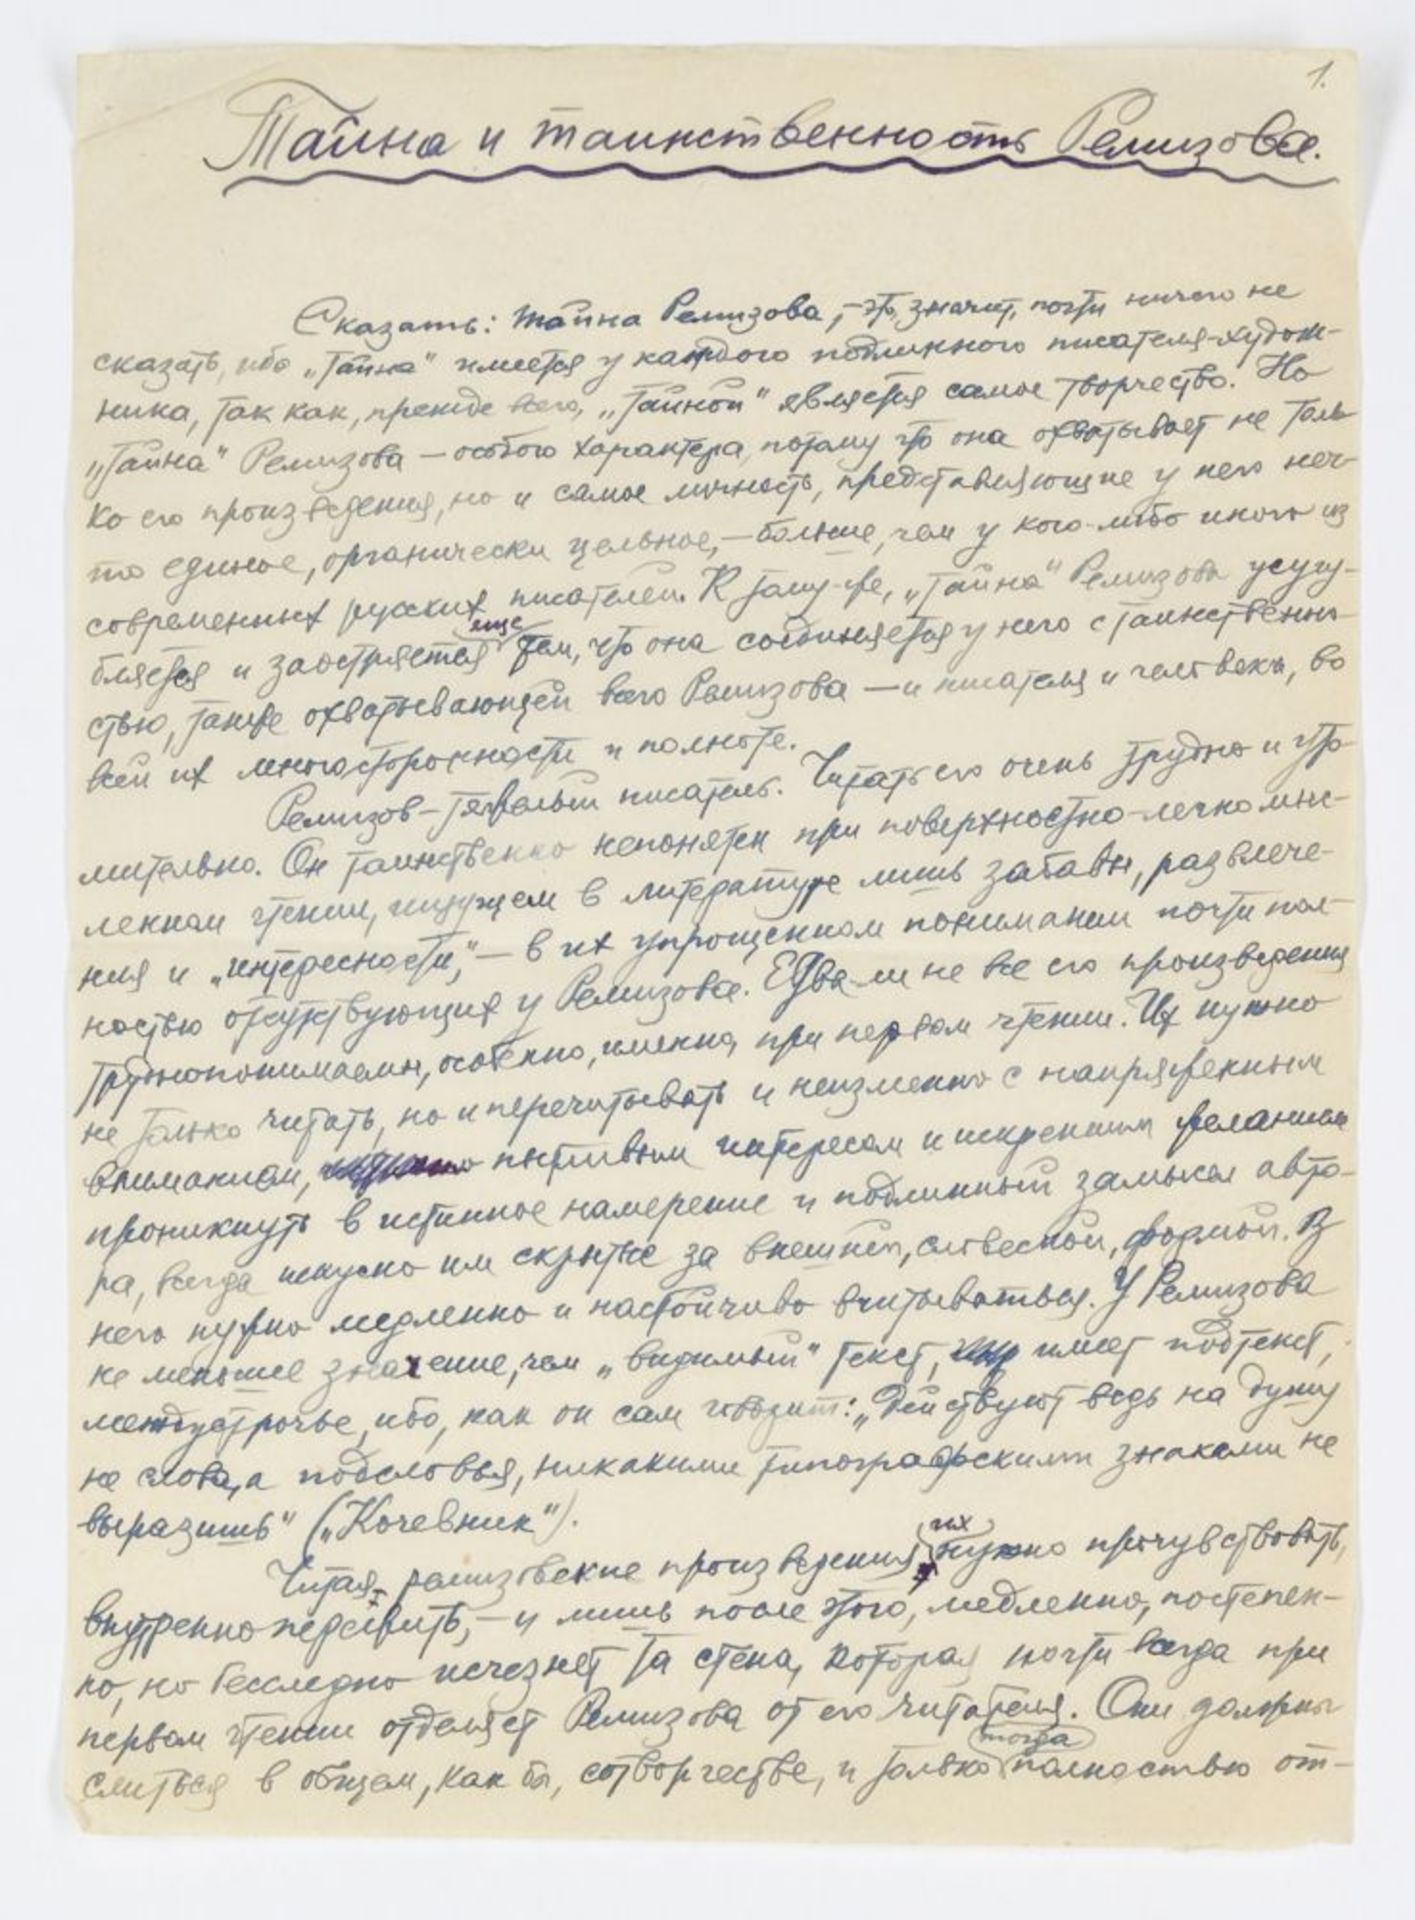 1.
Тайна и таинственность Ремизова.
Сказать: тайна Ремизова, – это, значит, почти ничего не
сказать, ибо „тайна" имеется у каждого подлинного писателя-худож-
ника, так как, прежде всего, „тайной" является самое творчество. Но
„тайна" Ремизова — особого характера, потому что она охватывает не толь-
ко его произведения, но и самое личность, представляющие у него неч-
то единое, органически цельное, — больше, чем у кого-либо иного из
современных русских писателей. К тому-же, „тайна" Ремизова усугу-
бляется и заостряется еще тем, что она соединяется у него с таинственно-
стью, также охватывающей всего Ремизова — и писателя и человека, во
всей их многосторонности и полноте.
Ремизов – тяжелый писатель. Читать его очень трудно и уто-
мительно. Он таинственно непонятен при поверхностно-легкомыс-
ленном чтении, ищущем в литературе лишь забавы, развлече-
ния и „интересности", — в их упрощенном понимании почти пол-
ностью отсутствующих у Ремизова. Едва-ли не все его произведения
труднопонимаемы, особенно, именно, при первом чтении. Их нужно
не только читать, но и перечитывать и неизменно с напряженным
вниманием, пытливым интересом и искренним желанием
проникнуть в истинное намерение и подлинный замысел авто-
ра, всегда искусно им скрытые за внешней, словесной, формой. В
него нужно медленно и настойчиво вчитываться. У Ремизова
не меньшее значение, чем „видимый" текст, имеет подтекст,
междустрочье, ибо, как он сам говорит: „Действуют ведь на душу
не слова, а подсловья, никакими типографскими знаками не
выразишь" („Кочевник").
Читая ремизовские произведения, их нужно прочувствовать,
внутренно пережить, – и лишь после этого, медленно, постепен-
но, но бесследно исчезнет та стена, которая почти всегда при
первом чтении отделяет Ремизова от его читателя. Они должны
слиться в общем, как бы, сотворчестве, и только тогда полностью от-